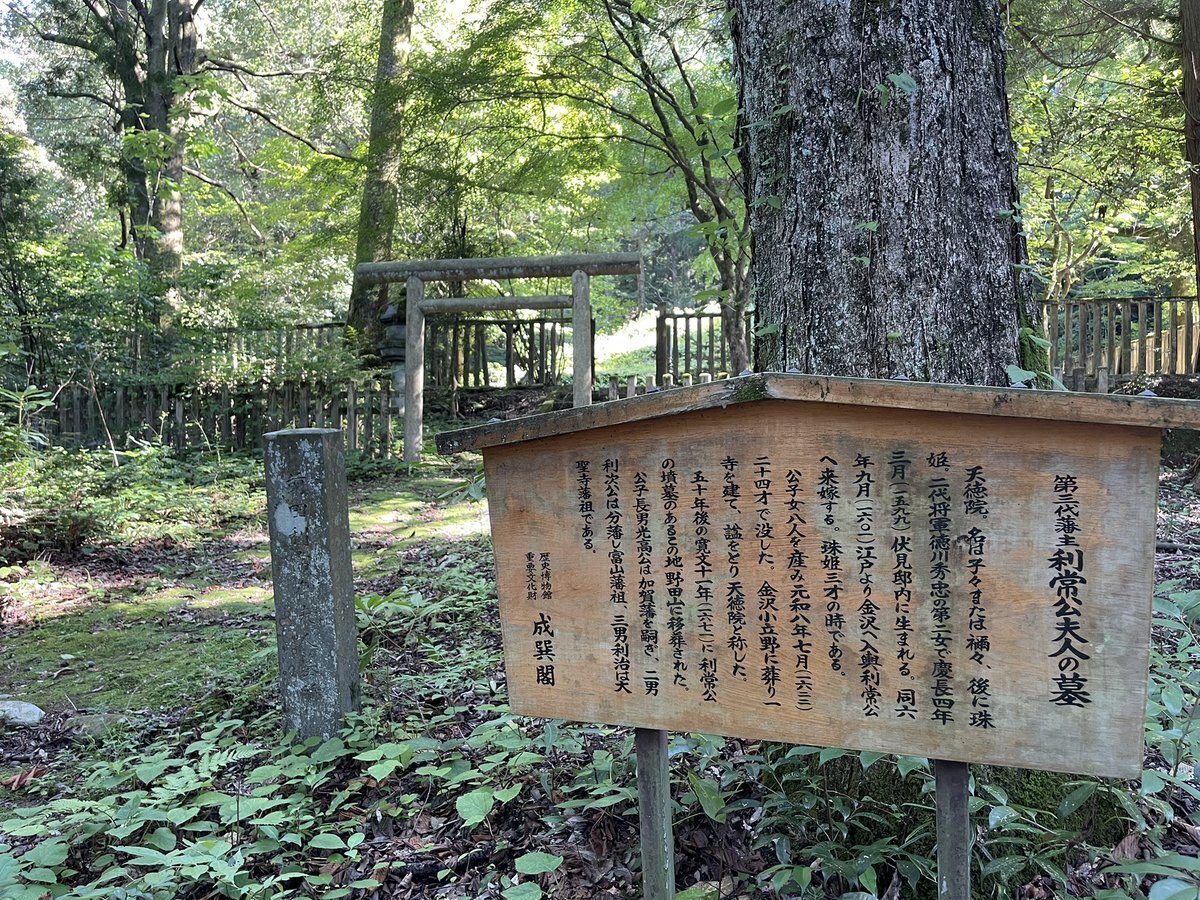 第三代藩主利常公夫人の墓
天徳院。名は子々または禰々、後に珠
姫。二代将軍徳川秀忠の第二女で慶長四年
三月(一五九九)伏見邸内に生まれる。同六
年九月(一六〇一)江戸より金沢へ入輿利常公
へ来嫁する。珠姫三才の時である。
公子女八人を産み元和八年七月(一六二二)
二十四才で没した。金沢小立野に葬り一
寺を建て、謚をとり天徳院と称した。
五十年後の寛文十一年(一六七一)に利常公
の墳墓のあるこの地野田山に移葬された。
公子長男光高公は加賀藩を嗣ぎ、二男
利次公は分藩し富山藩祖、三男利治は大
聖寺藩祖である。
歴史博物館
重要文化財
成巽閣